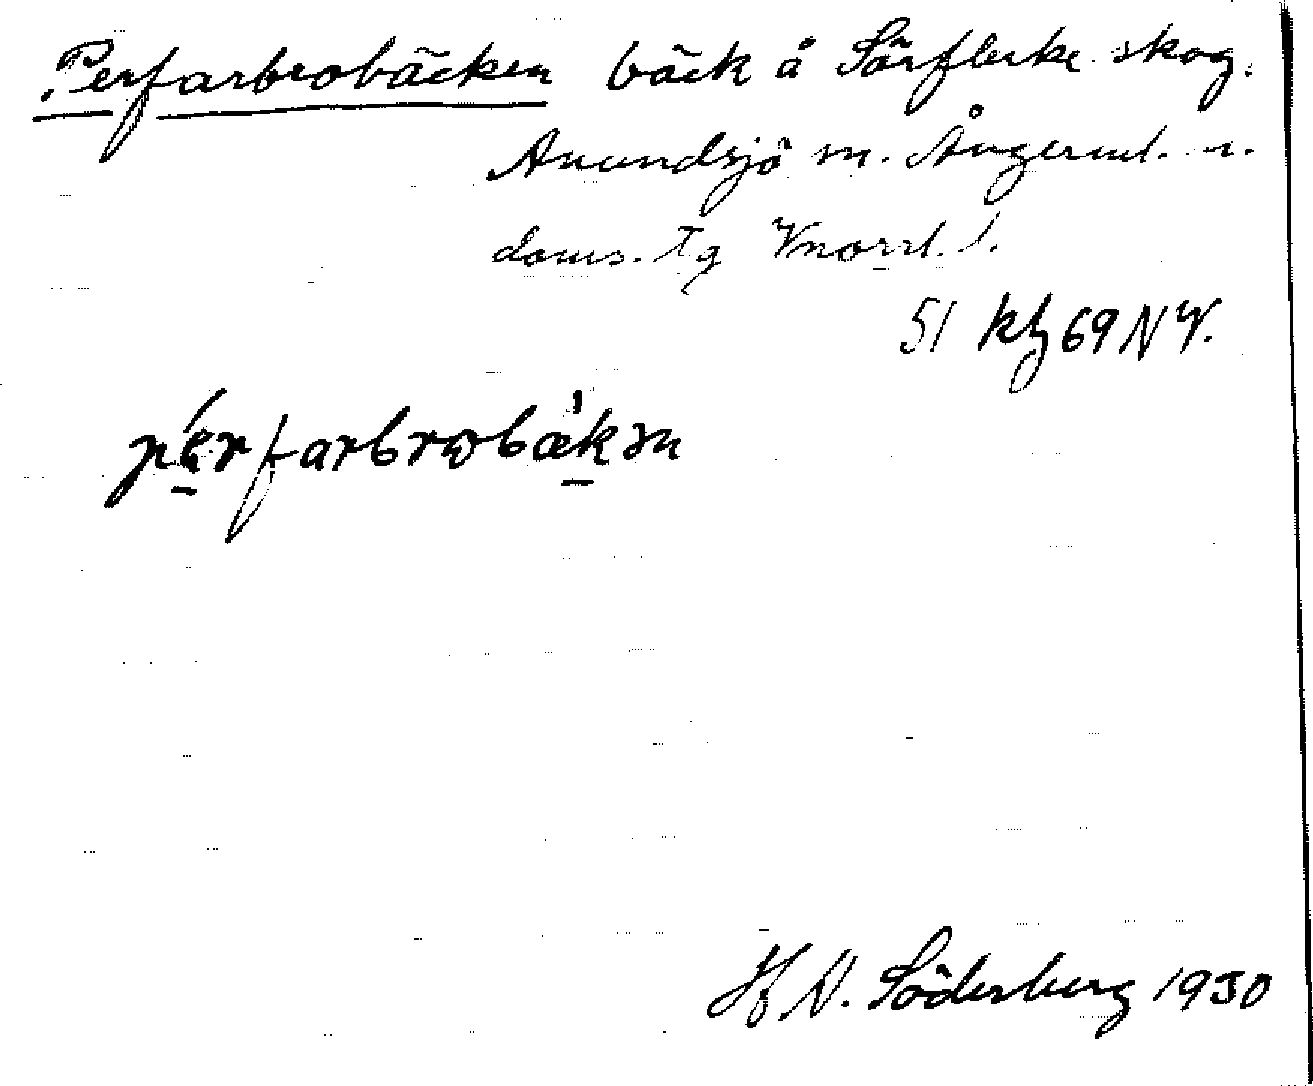 Perfarbrobäcken bäck å Sörflärke skog.
Anundsjö sn. Ångerml. n.
doms. Tg Vnorrl. l.
51 kbl 69 NV.
pèrfarbrωbæ̀kən
H. N. Söderberg 1930